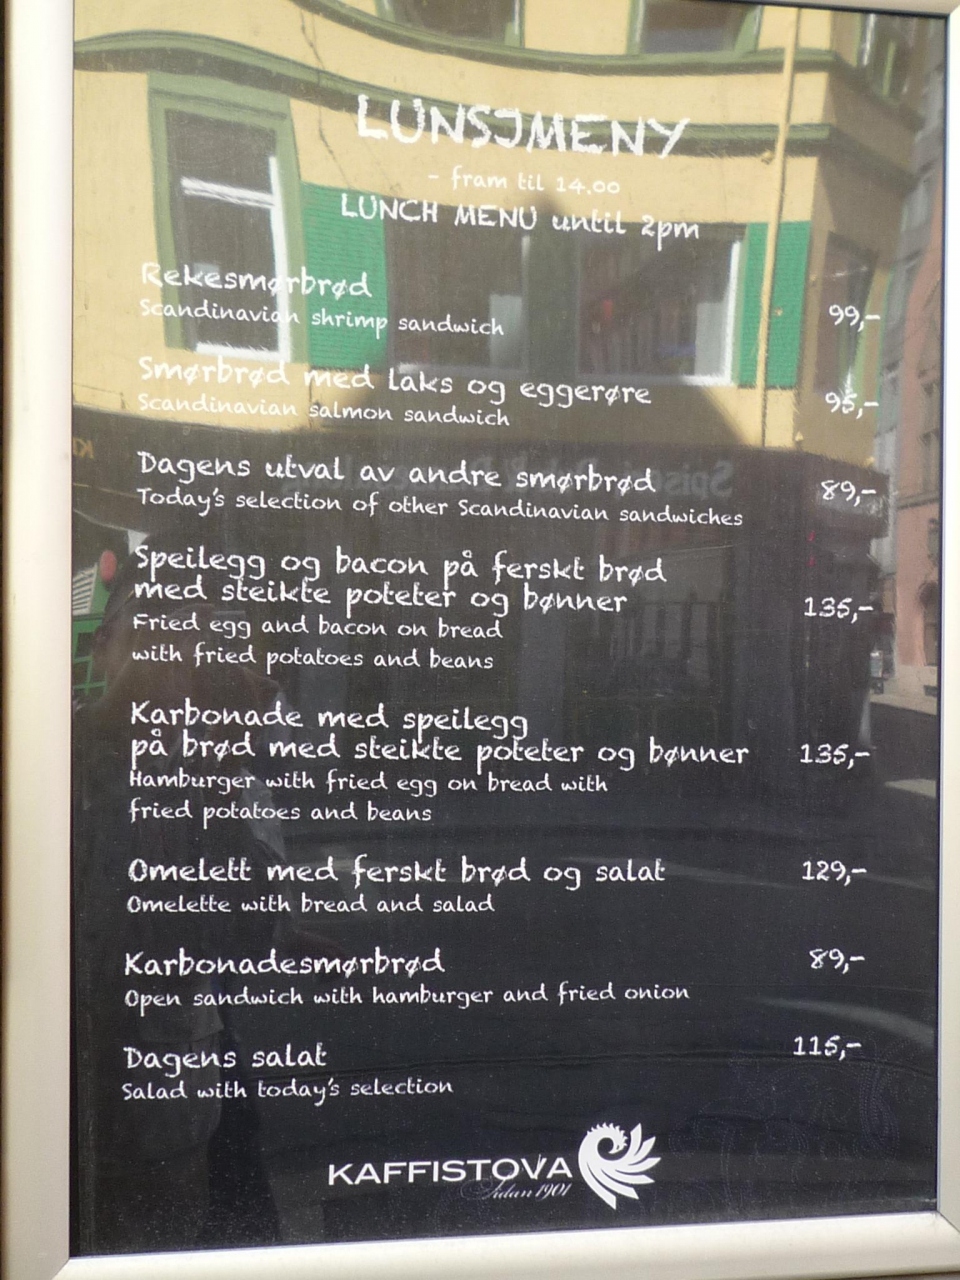 LUNSJMENY
- fram til 14.00
LUNCH MENU until 2pm
Rekesmørbrød
Scandinavian shrimp sandwich
99,-
Smørbrød med laks og eggerøre
Scandinavian salmon sandwich
95,-
Dagens utval av andre smørbrød
Today's selection of other Scandinavian sandwiches
89,-
Speilegg og bacon på ferskt brød
med steikte poteter og bønner
135,-
Fried egg and bacon on bread
with fried potatoes and beans
Karbonade med speilegg
på brød med steikte poteter og bønner
135,-
Hamburger with fried egg on bread with
fried potatoes and beans
Omelett med ferskt brød og salat
129,-
Omelette with bread and salad
Karbonadesmørbrød
89,-
Open sandwich with hamburger and fried onion
Dagens salat
115,-
Salad with today's selection
KAFFISTOVA
Sidan 1901